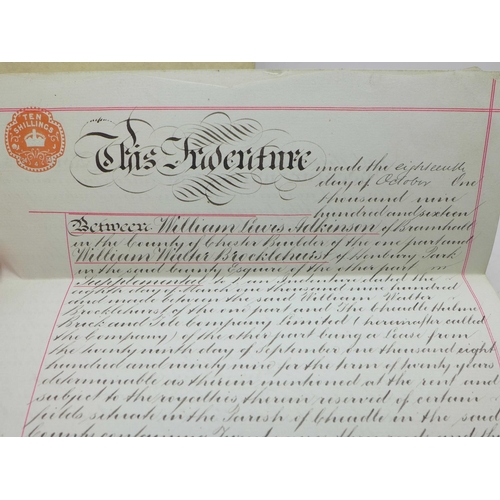 TEN
SHILLINGS
This Indenture made the eighteenth
day of October One
thousand nine
hundred and sixteen
Between William Lewis Adkinson of Bramhall
in the County of Chester Builder of the one part and
William Walter Brocklehurst of Henbury Park
in the said County Esquire of the other part
Supplemental to an Indenture dated the
eighth day of March one thousand nine hundred
and made between the said William Walter
Brocklehurst of the one part and The Cheadle Hulme
Brick and Tile Company Limited (hereinafter called
the Company) of the other part being a Lease from
the twenty ninth day of September one thousand eight
hundred and ninety nine for the term of twenty years
determinable as therein mentioned at the rent and
subject to the royalties therein reserved of certain
fields situate in the Parish of Cheadle in the said
County containing